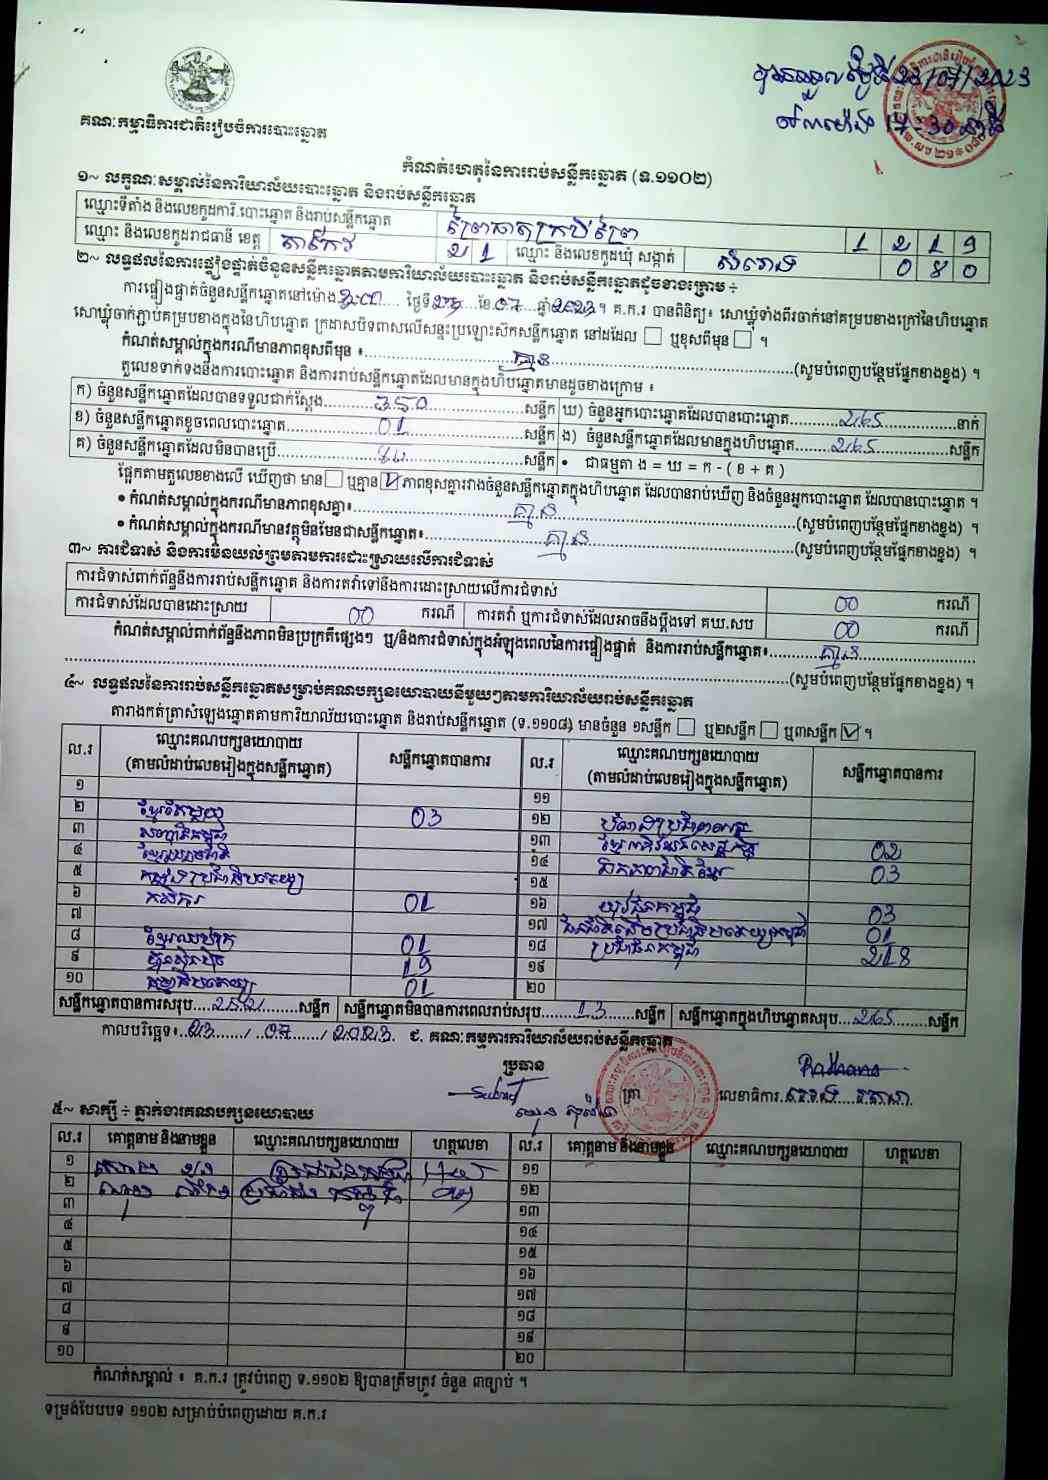 គណៈកម្មាធិការជាតិរៀបចំការបោះឆ្នោត
កំណត់ហេតុនៃការរាប់សន្លឹកឆ្នោត (ទ.១១០២)
១~ លក្ខណៈសម្គាល់នៃការិយាល័យបោះឆ្នោត និងរាប់សន្លឹកឆ្នោត
ឈ្មោះទីតាំង និងលេខកូដការិ.បោះឆ្នោត និងរាប់សន្លឹកឆ្នោត 1 2 1 9
ឈ្មោះ និងលេខកូដរាជធានី ខេត្ត តាកែវ 2 1 ឈ្មោះ និងលេខកូដឃុំ សង្កាត់ សំរោង 0 8 0
២~ លទ្ធផលនៃការផ្ទៀងផ្ទាត់ចំនួនសន្លឹកឆ្នោតតាមការិយាល័យបោះឆ្នោត និងរាប់សន្លឹកឆ្នោតដូចខាងក្រោម ÷
ការផ្ទៀងផ្ទាត់ចំនួនសន្លឹកឆ្នោតនៅម៉ោង ថ្ងៃទី ខែ 07 ឆ្នាំ 2023 ។ គ.ក.រ បានពិនិត្យ៖ សោឃ្លុំទាំងពីរចាក់នៅគម្របខាងក្រៅនៃហិបឆ្នោត
សោឃ្លុំចាក់ភ្ជាប់គម្របខាងក្នុងនៃហិបឆ្នោត ក្រដាសបិទពាសលើសន្ទះប្រឡោះស៊កសន្លឹកឆ្នោត នៅដដែល ឬខុសពីមុន ។
កំណត់សម្គាល់ក្នុងករណីមានភាពខុសពីមុន ៖ គ្មាន (សូមបំពេញបន្ថែមផ្នែកខាងខ្នង) ។
តួលេខទាក់ទងនឹងការបោះឆ្នោត និងការរាប់សន្លឹកឆ្នោតដែលមានក្នុងហិបឆ្នោតមានដូចខាងក្រោម ៖
ក) ចំនួនសន្លឹកឆ្នោតដែលបានទទួលជាក់ស្តែង 350 សន្លឹក ឃ) ចំនួនអ្នកបោះឆ្នោតដែលបានបោះឆ្នោត 265 នាក់
ខ) ចំនួនសន្លឹកឆ្នោតខូចពេលបោះឆ្នោត 01 សន្លឹក ង) ចំនួនសន្លឹកឆ្នោតដែលមានក្នុងហិបឆ្នោត 265 សន្លឹក
គ) ចំនួនសន្លឹកឆ្នោតដែលមិនបានប្រើ សន្លឹក • ជាធម្មតា ង = ឃ = ក - ( ខ + គ )
ផ្អែកតាមតួលេខខាងលើ ឃើញថា មាន ឬគ្មាន ភាពខុសគ្នារវាងចំនួនសន្លឹកឆ្នោតក្នុងហិបឆ្នោត ដែលបានរាប់ឃើញ និងចំនួនអ្នកបោះឆ្នោត ដែលបានបោះឆ្នោត ។
• កំណត់សម្គាល់ក្នុងករណីមានភាពខុសគ្នា៖ គ្មាន (សូមបំពេញបន្ថែមផ្នែកខាងខ្នង) ។
• កំណត់សម្គាល់ក្នុងករណីមានវត្ថុមិនមែនជាសន្លឹកឆ្នោត៖ គ្មាន (សូមបំពេញបន្ថែមផ្នែកខាងខ្នង) ។
៣~ ការជំទាស់ និងការមិនយល់ព្រមតាមការដោះស្រាយលើការជំទាស់
ការជំទាស់ពាក់ព័ន្ធនឹងការរាប់សន្លឹកឆ្នោត និងការតវ៉ាទៅនឹងការដោះស្រាយលើការជំទាស់ 00 ករណី
ការជំទាស់ដែលបានដោះស្រាយ 00 ករណី ការតវ៉ា ឬការជំទាស់ដែលអាចនឹងប្តឹងទៅ គឃ.សប 00 ករណី
កំណត់សម្គាល់ពាក់ព័ន្ធនឹងភាពមិនប្រក្រតីផ្សេងៗ ឬ/និងការជំទាស់ក្នុងអំឡុងពេលនៃការផ្ទៀងផ្ទាត់ និងការរាប់សន្លឹកឆ្នោត៖ គ្មាន
(សូមបំពេញបន្ថែមផ្នែកខាងខ្នង) ។
៤~ លទ្ធផលនៃការរាប់សន្លឹកឆ្នោតសម្រាប់គណបក្សនយោបាយនីមួយៗតាមការិយាល័យរាប់សន្លឹកឆ្នោត
តារាងកត់ត្រាសំឡេងឆ្នោតតាមការិយាល័យបោះឆ្នោត និងរាប់សន្លឹកឆ្នោត (ទ.១១០៨) មានចំនួន ១សន្លឹក ឬ២សន្លឹក ឬ៣សន្លឹក ។
ល.រ ឈ្មោះគណបក្សនយោបាយ សន្លឹកឆ្នោតបានការ ល.រ ឈ្មោះគណបក្សនយោបាយ សន្លឹកឆ្នោតបានការ
(តាមលំដាប់លេខរៀងក្នុងសន្លឹកឆ្នោត) (តាមលំដាប់លេខរៀងក្នុងសន្លឹកឆ្នោត)
១ ១១
២ 03 ១២
៣ ១៣ 02
៤ ១៤ 03
៥ ១៥
៦ កសិករ 01 ១៦ 03
៧ ១៧ 01
៨ 01 ១៨ ប្រជាជនកម្ពុជា 218
៩ ហ្វ៊ុនស៊ិនប៉ិច 19 ១៩
១០ 01 ២០
សន្លឹកឆ្នោតបានការសរុប 252 សន្លឹក សន្លឹកឆ្នោតមិនបានការពេលរាប់សរុប 13 សន្លឹក សន្លឹកឆ្នោតក្នុងហិបឆ្នោតសរុប 265 សន្លឹក
កាលបរិច្ឆេទ៖ 23 / 07 / 2023 ជ. គណៈកម្មការការិយាល័យរាប់សន្លឹកឆ្នោត
ប្រធាន
ត្រា លេខាធិការ
៥~ សាក្សី ÷ ភ្នាក់ងារគណបក្សនយោបាយ
ល.រ គោត្តនាម និងនាមខ្លួន ឈ្មោះគណបក្សនយោបាយ ហត្ថលេខា ល.រ គោត្តនាម និងនាមខ្លួន ឈ្មោះគណបក្សនយោបាយ ហត្ថលេខា
១ ១១
២ ១២
៣ ១៣
៤ ១៤
៥ ១៥
៦ ១៦
៧ ១៧
៨ ១៨
៩ ១៩
១០ ២០
កំណត់សម្គាល់ ៖ គ.ក.រ ត្រូវបំពេញ ទ.១១០២ ឱ្យបានត្រឹមត្រូវ ចំនួន ៣ច្បាប់ ។
ទម្រង់បែបបទ ១១០២ សម្រាប់បំពេញដោយ គ.ក.រ